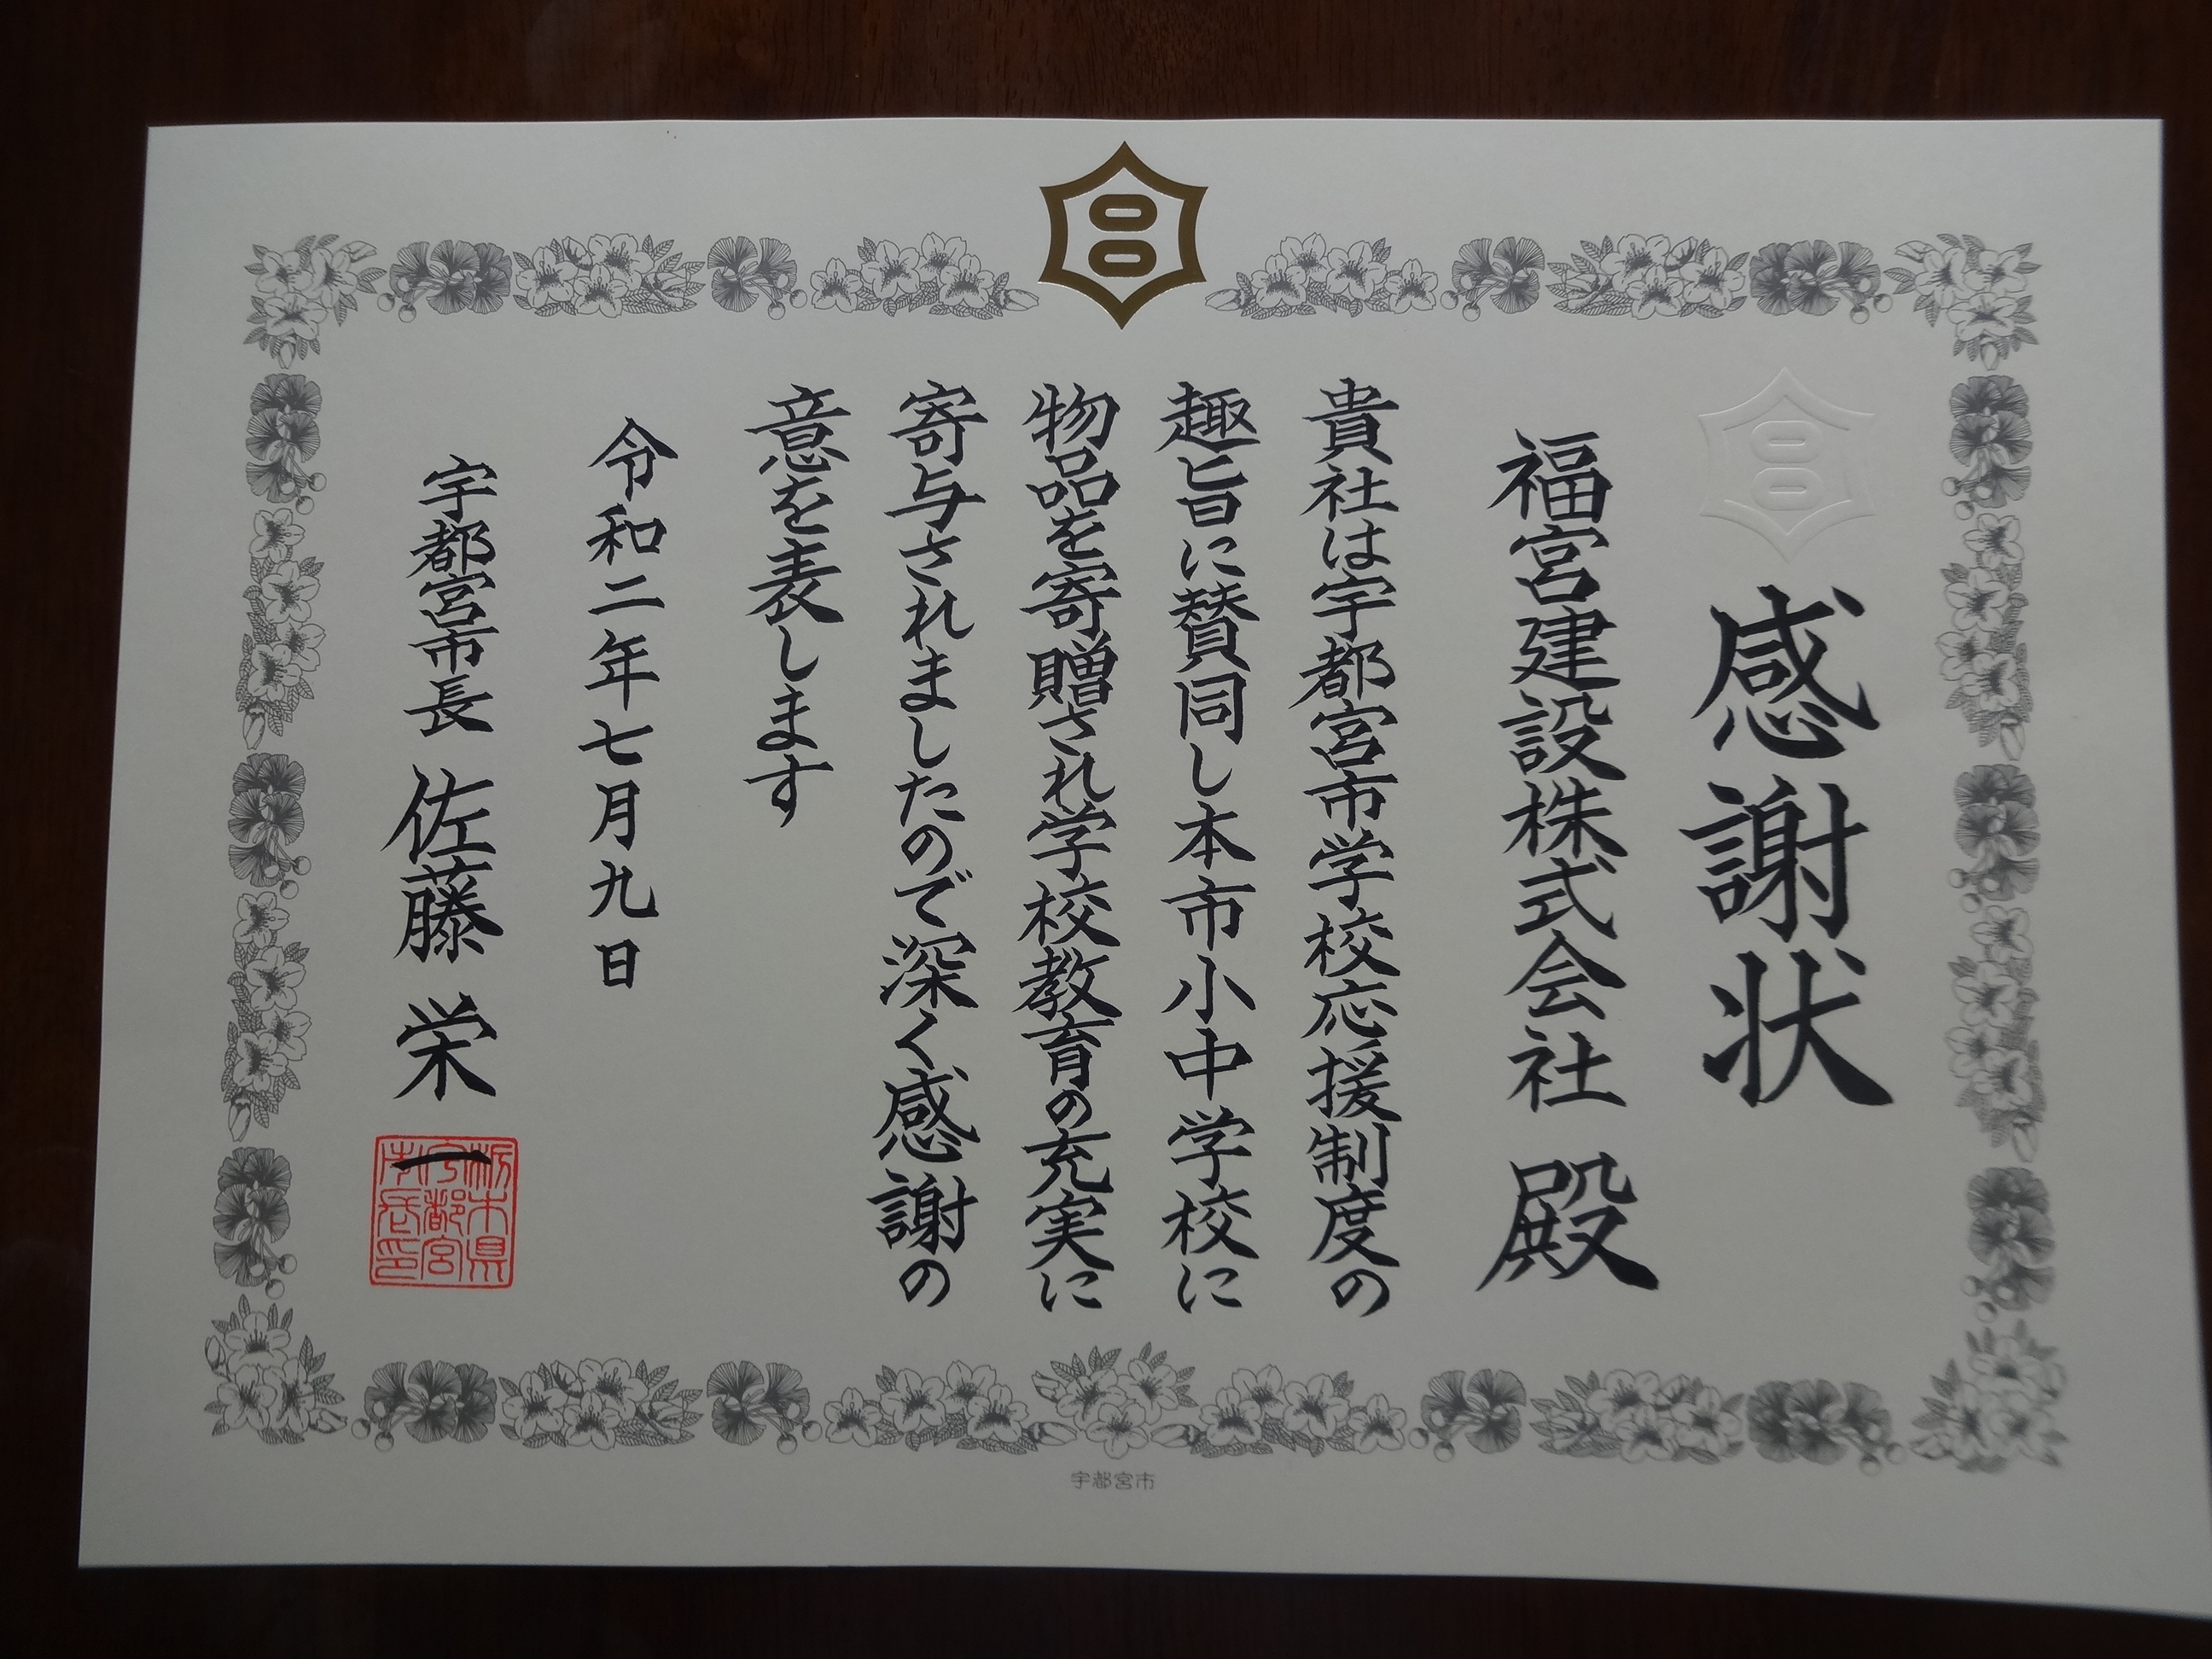 感謝状
福宮建設株式会社 殿
貴社は宇都宮市学校応援制度の
趣旨に賛同し本市小中学校に
物品を寄贈され学校教育の充実に
寄与されましたので深く感謝の
意を表します
令和二年七月九日
宇都宮市長 佐藤栄一
栃木県
宇都宮
市長印
宇都宮市